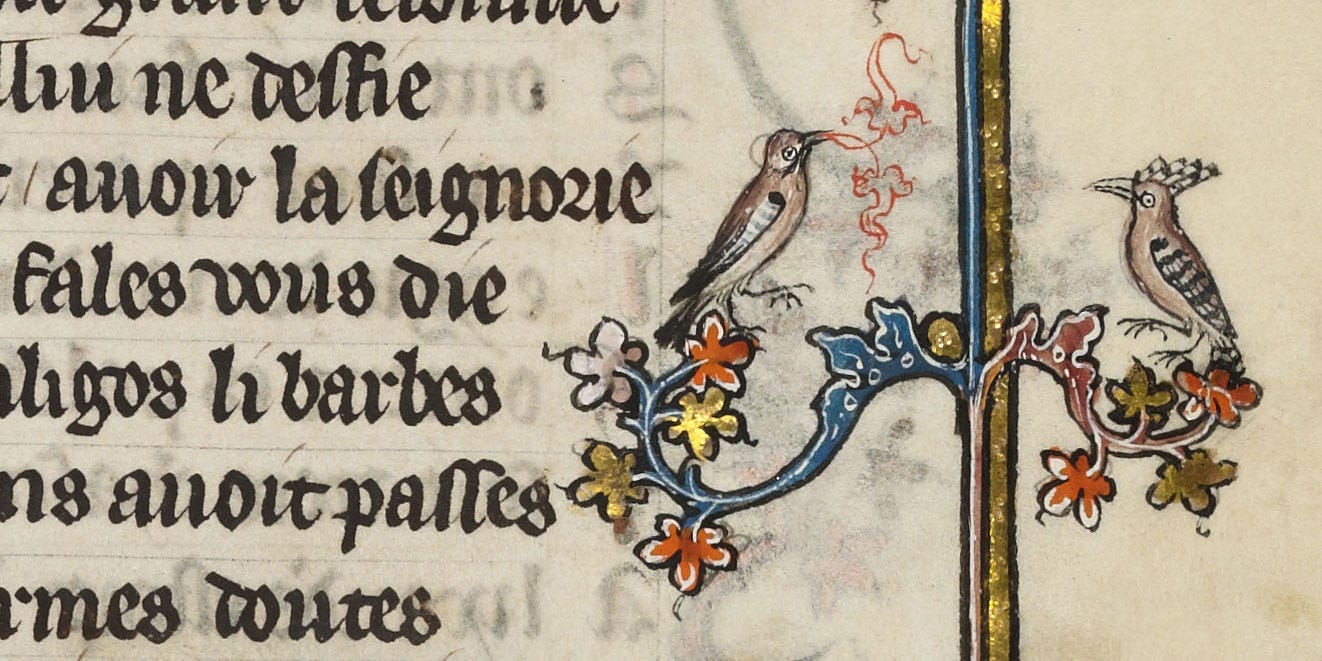 grant
ne deffie
auoir la seignorie
fales vous die
aligos li barbes
ns auoit passes
rmes doutes